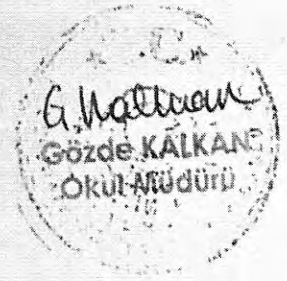 G. Kalkan
Gözde KALKAN
Okul Müdürü